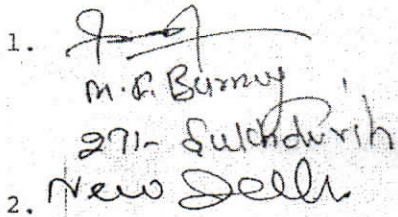 1.
M. K. Burmy
271- Sukhdev Vih
2. New Delhi